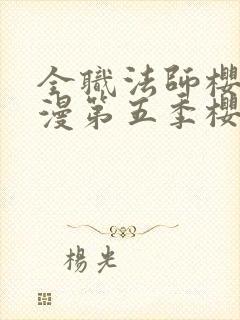 全職法師櫻
漫第五季櫻
楊光